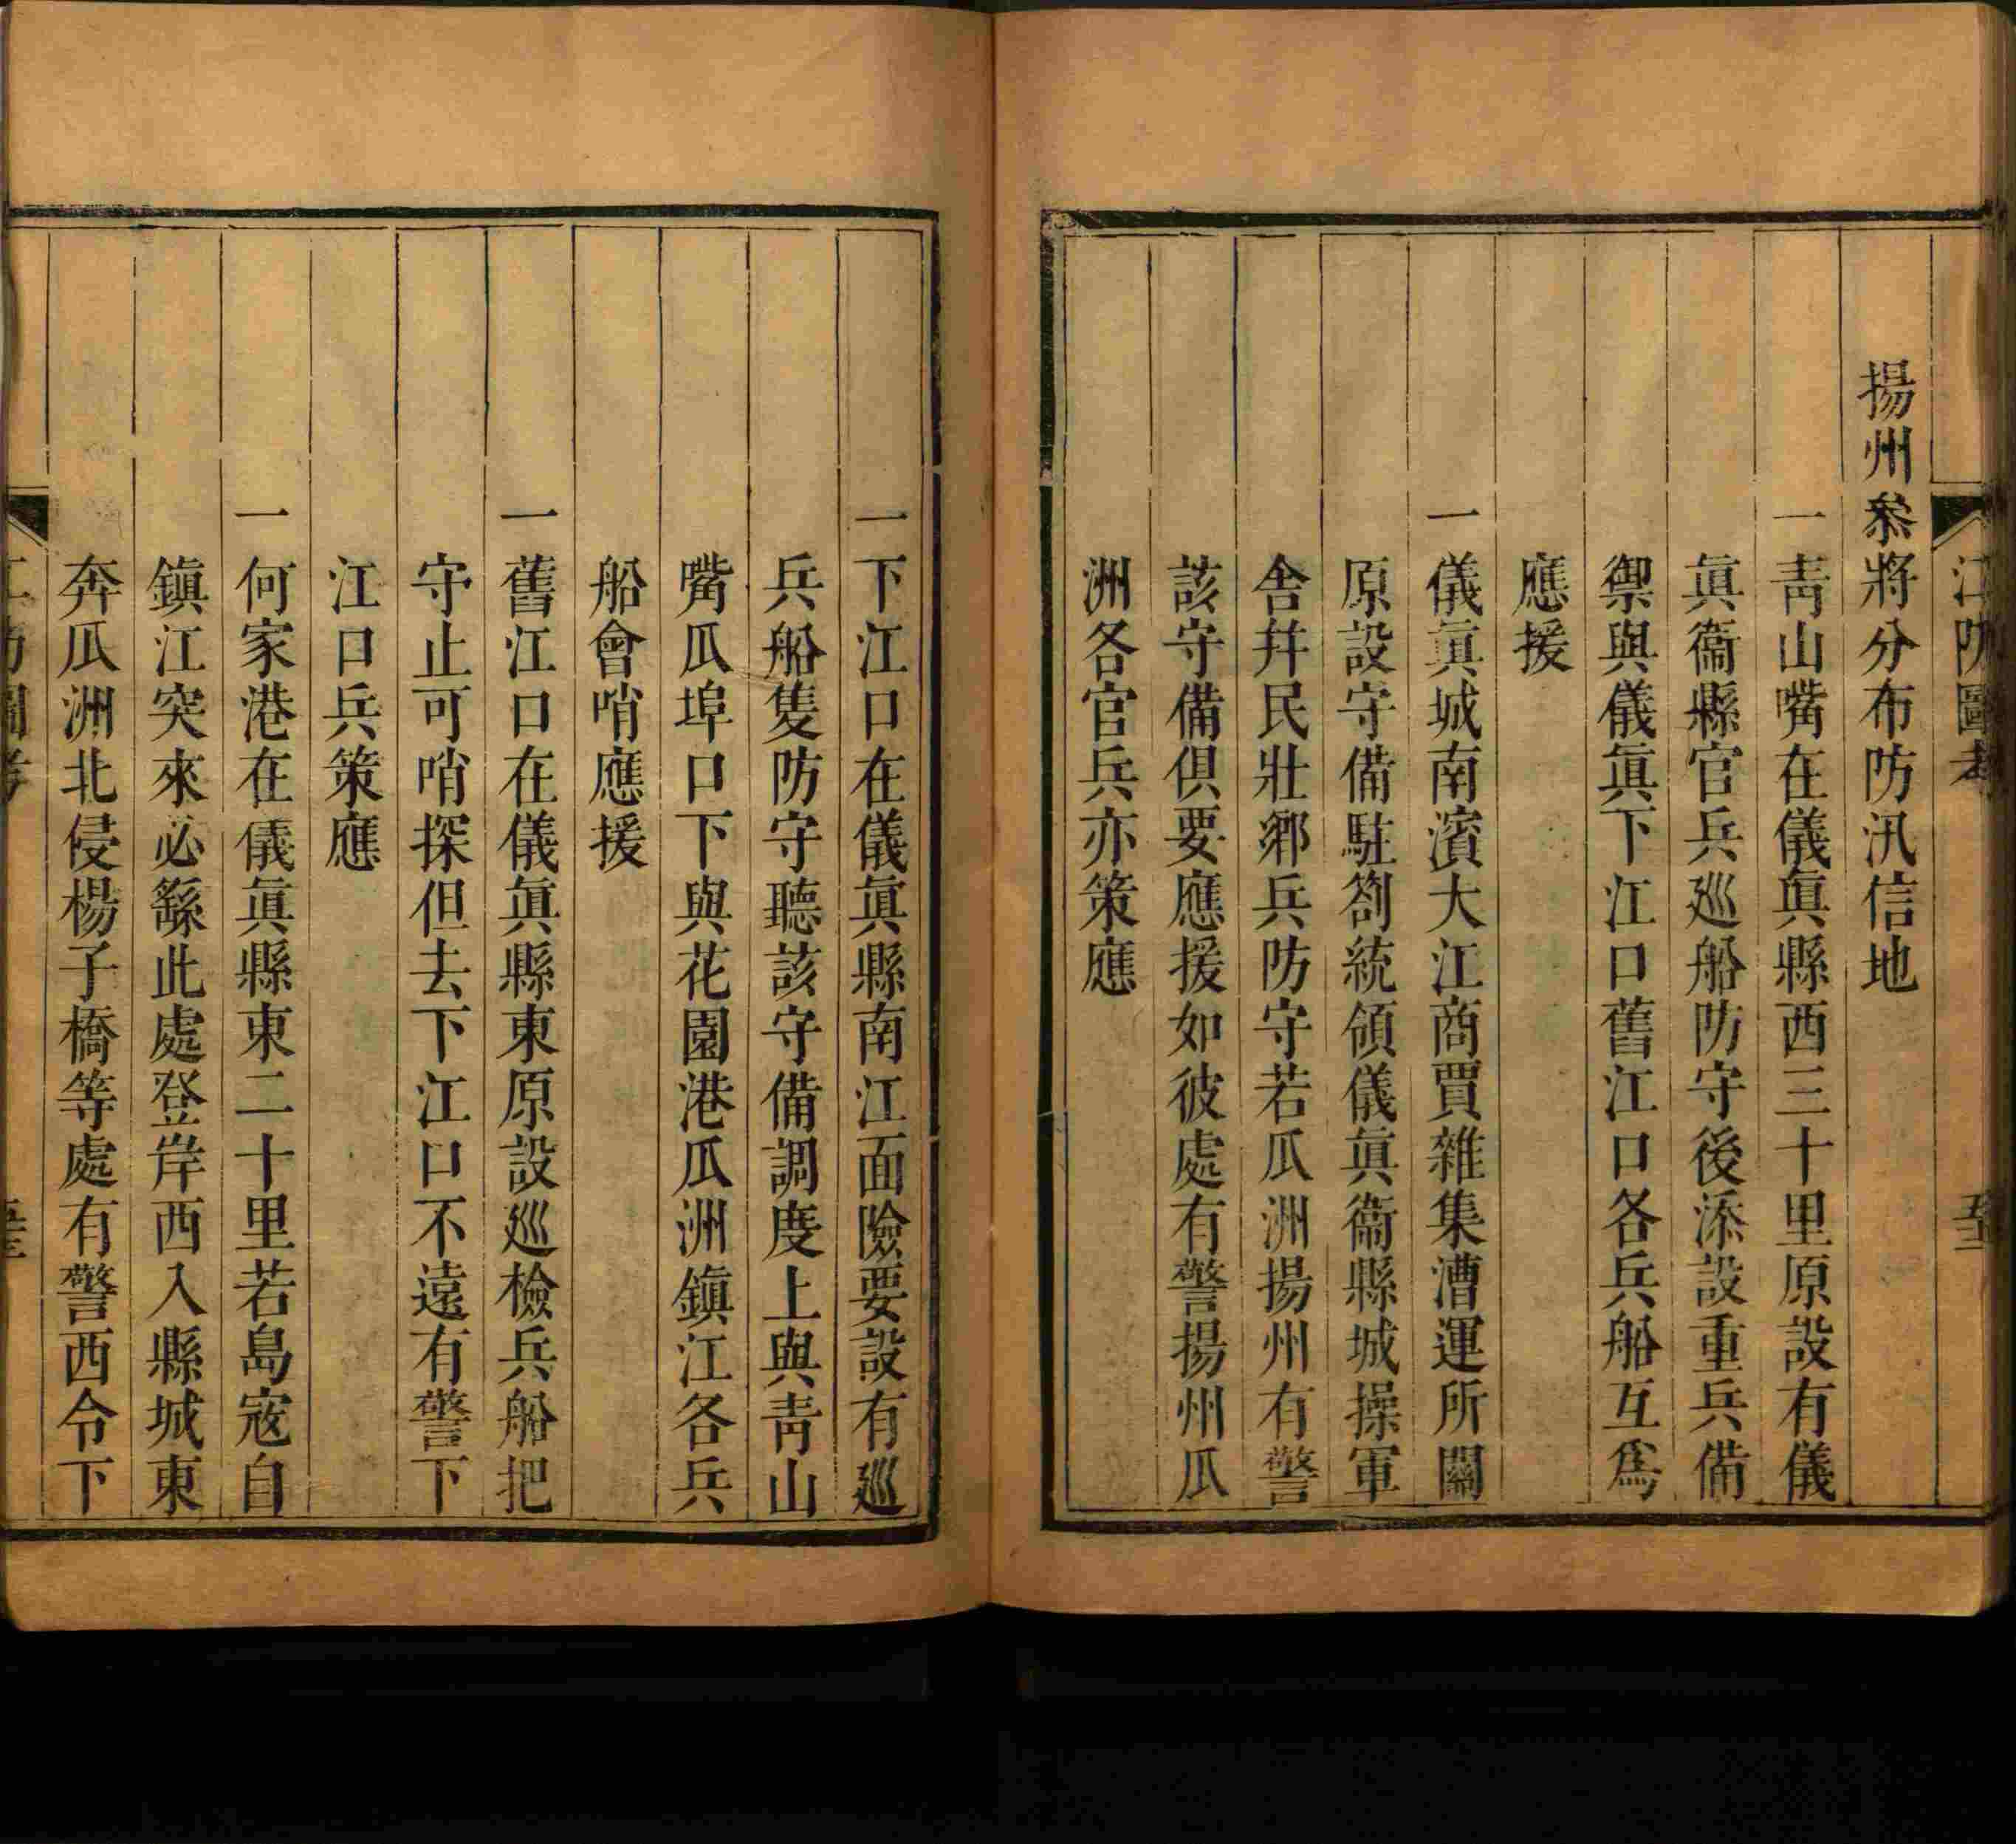 江防圖考
揚州叅將分布防汛信地
一青山嘴在儀眞縣西三十里原設有儀
眞衞縣官兵巡船防守後添設重兵備
禦與儀眞下江口舊江口各兵船互爲
應援
一儀眞城南濱大江商賈雜集漕運所關
原設守備駐劄統領儀眞衞縣城操軍
舎幷民壯鄕兵防守若瓜洲揚州有警
該守備俱要應援如彼處有警揚州瓜
洲各官兵亦策應
一下江口在儀眞縣南江面險要設有巡
兵船隻防守聽該守備調度上與青山
嘴瓜埠口下與花園港瓜洲鎭江各兵
船會哨應援
一舊江口在儀眞縣東原設巡檢兵船把
守止可哨探但去下江口不遠有警下
江口兵策應
一何家港在儀眞縣東二十里若島寇自
鎭江突來必繇此處登岸西入縣城東
奔瓜洲北侵楊子橋等處有警西令下